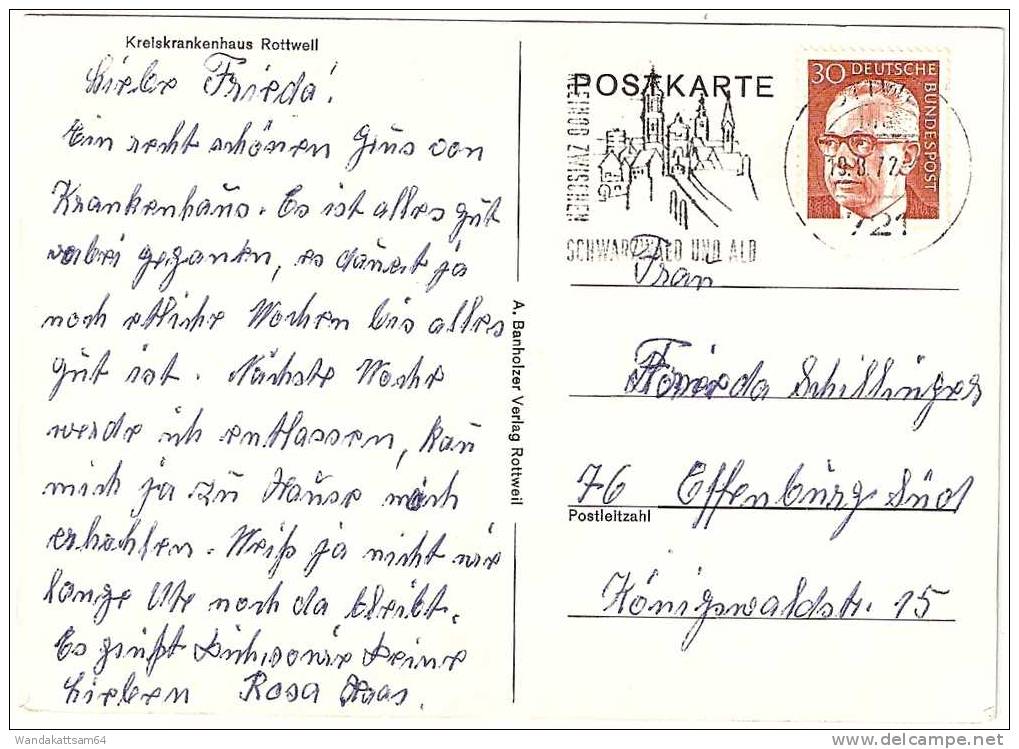 Kreiskrankenhaus Rottweil
Liebe Frieda!
Ein recht schönen Gruß von
Krankenhaus. Es ist alles gut
vorbei geganken, es dauert ja
noch etliche Wochen bis alles
gut ist. Nächste Woche
werde ich entlassen, kan
mich ja zu Hause noch
erhohlen. Weiß ja nicht wie
lange Ute noch da bleibt.
Es grüßt Dich, sowie Deine
Lieben Rosa Haas.
A. Banholzer Verlag Rottweil
POSTKARTE
30 DEUTSCHE
BUNDESPOST
19.8.72
721
ZWISCHEN
SCHWARZWALD UND ALB
Frau
Frieda Schillinger
76 Offenburg Süd
Postleitzahl
Königswaldstr. 15
Wandakattsam64
delcampe.net